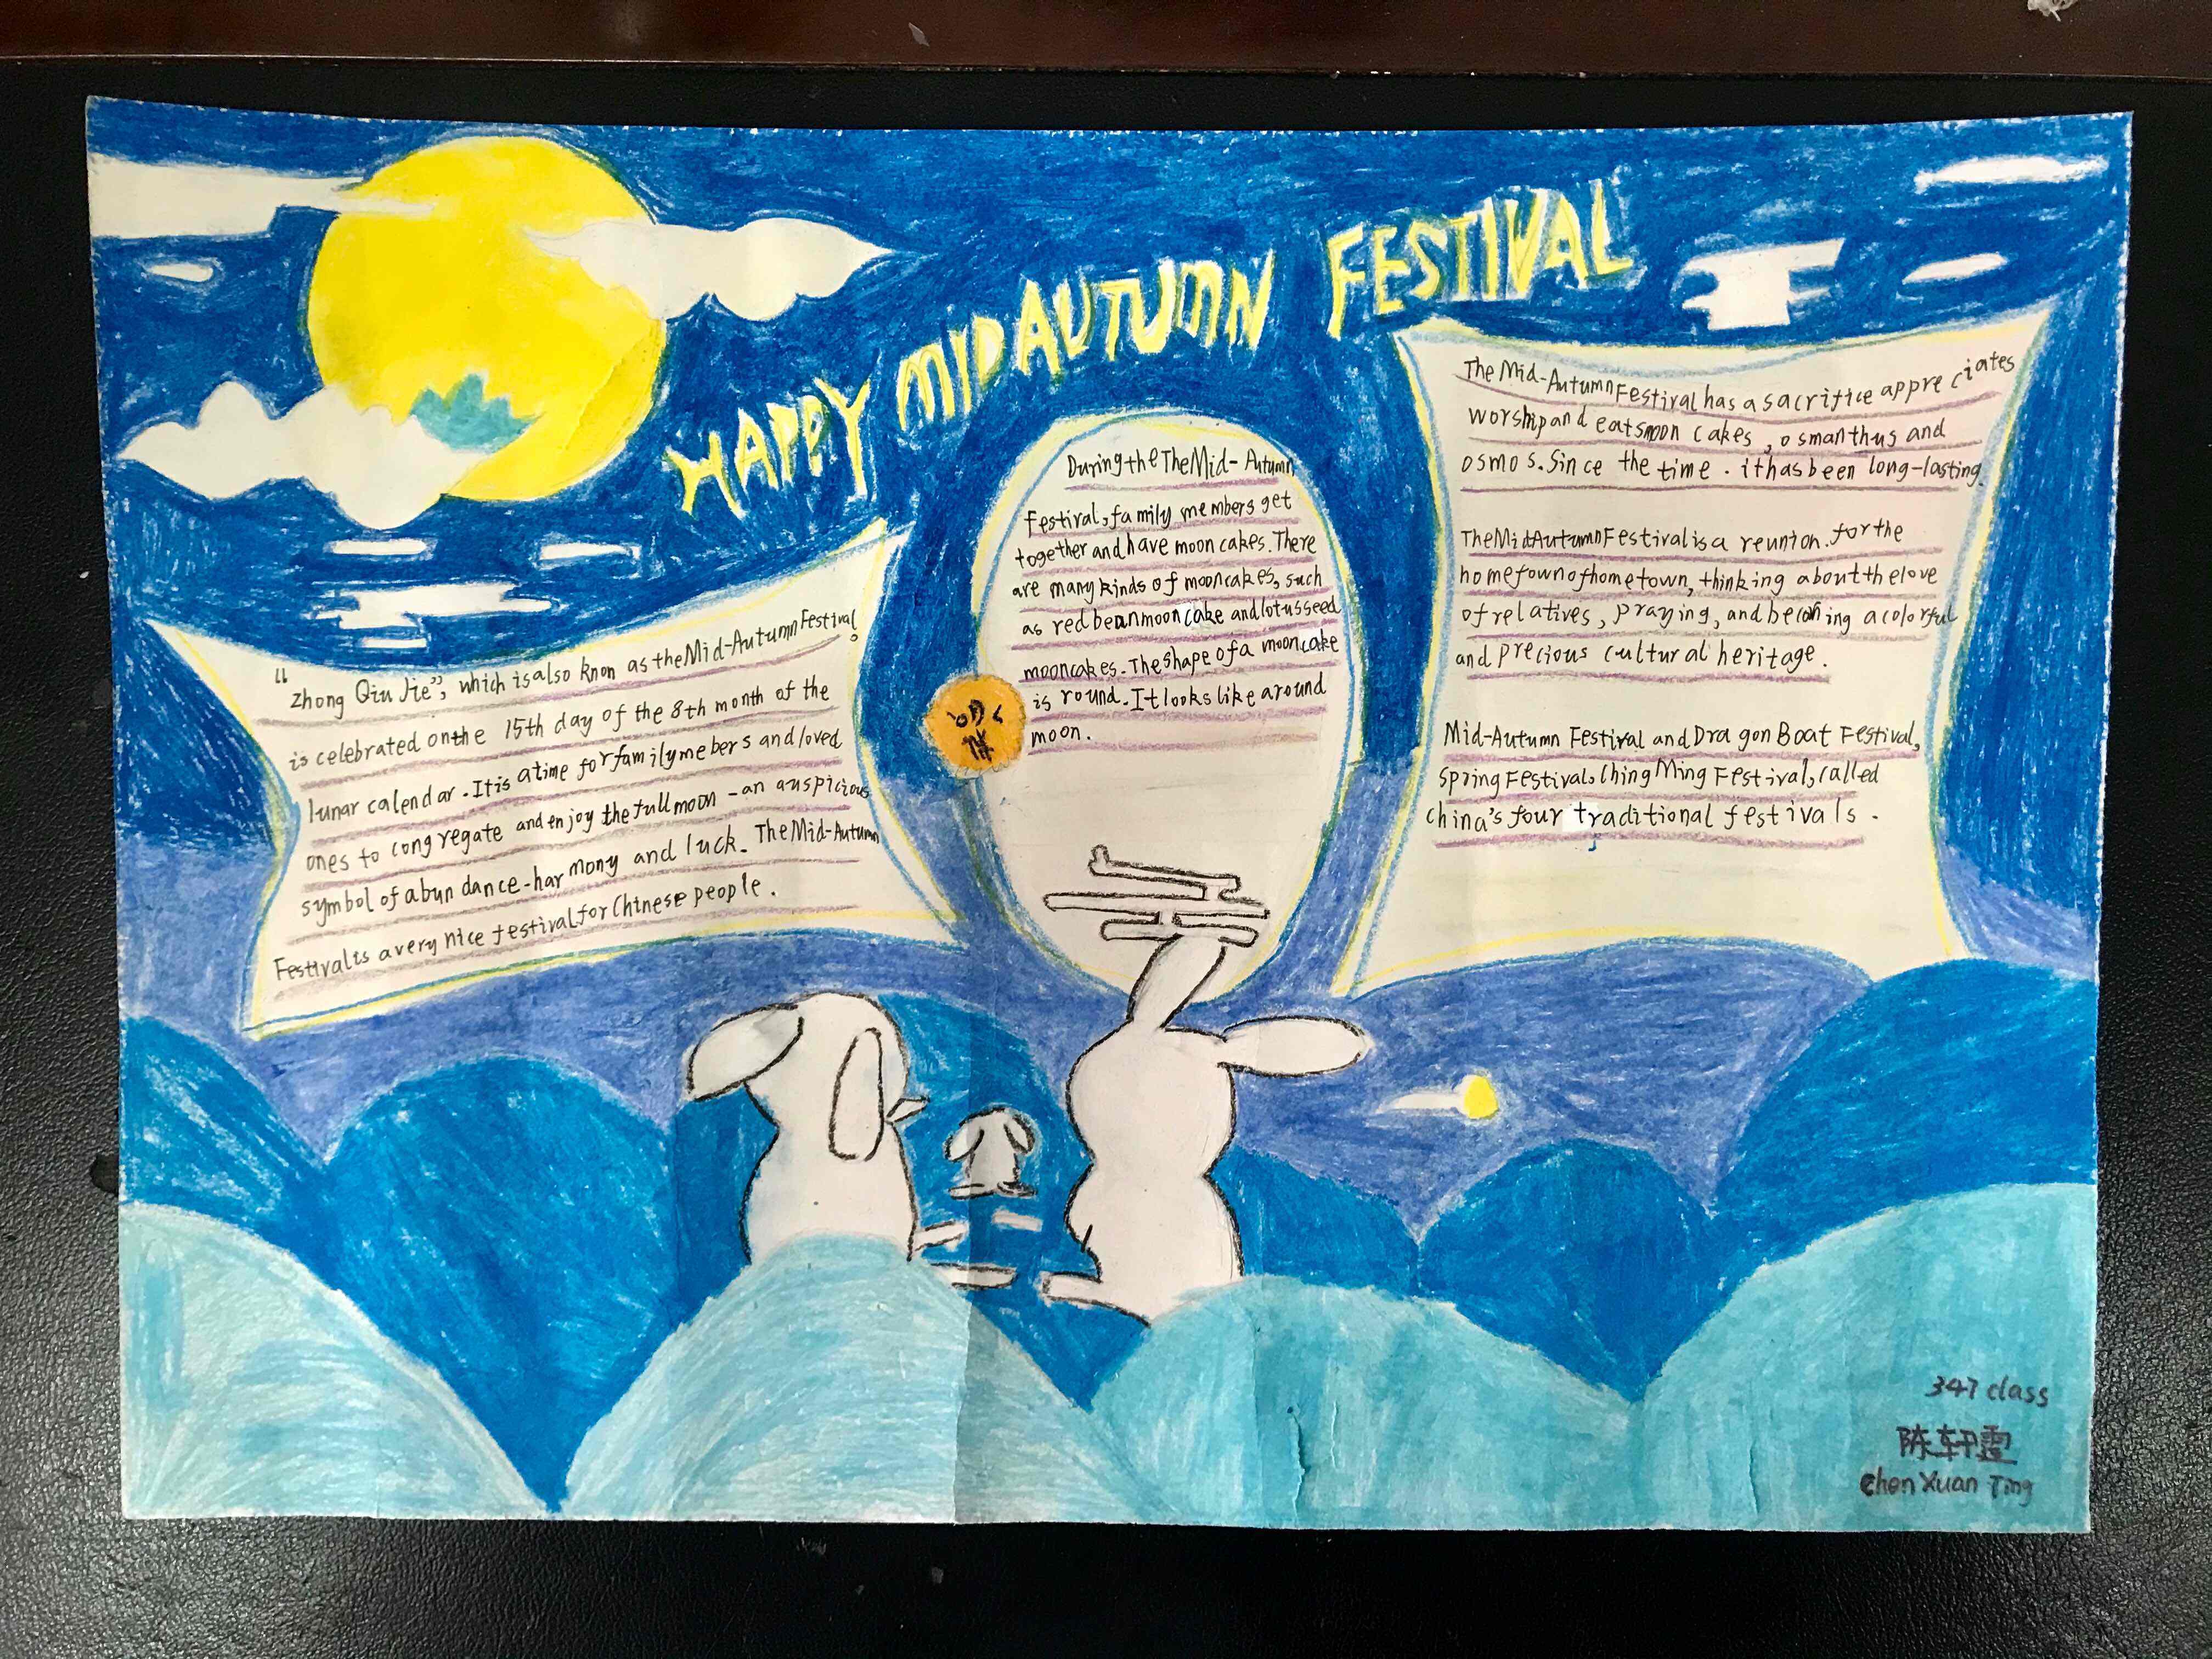 HAPPY MID AUTUMN FESTIVAL
"Zhong Qiu Jie", which is also knon as the Mid-Autumn Festival,
is celebrated on the 15th day of the 8th month of the
lunar calendar. It is a time for family mebers and loved
ones to congregate and enjoy the full moon - an auspicious
symbol of abundance - harmony and luck. The Mid-Autumn
Festival is a very nice festival for Chinese people.
During the The Mid-Autumn
Festival, family members get
together and have moon cakes. There
are many kinds of mooncakes, such
as red bean moon cake and lotus seed
mooncakes. The shape of a moon cake
is round. It looks like a round
moon.
The Mid-Autumn Festival has a sacrifice appreciates
worship and eats moon cakes, osmanthus and
osmos. Since the time. it has been long-lasting.
The Mid Autumn Festival is a reunion. for the
homefown of hometown, thinking about the love
of relatives, praying, and becoming a colorful
and precious cultural heritage.
Mid-Autumn Festival and Dragon Boat Festival,
Spring Festival, Ching Ming Festival, called
China's four traditional festivals.
347 class
陈轩霆
Chen Xuan Ting